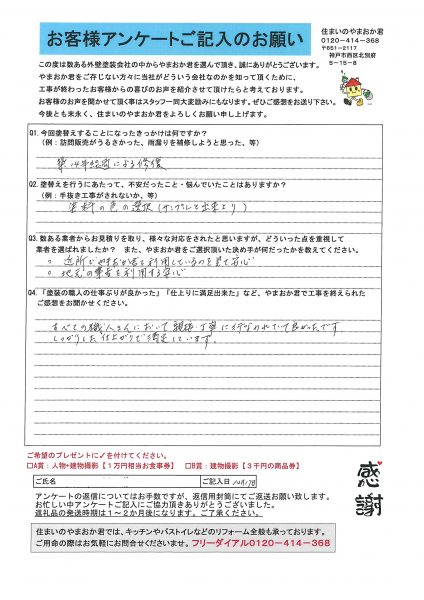 お客様アンケートご記入のお願い
住まいのやまおか君
0120-414-368
〒651-2117
神戸市西区北別府
5-15-8
この度は数ある外壁塗装会社の中からやまおか君を選んで頂き、誠にありがとうございます。
やまおか君をご存じない方々に当社がどういう会社なのかを知って頂くために、
工事が終わったお客様からの喜びのお声を紹介させて頂けたらと考えております。
お客様のお声を聞かせて頂く事はスタッフ一同大変励みにもなります。ぜひご感想をお送り下さい。
今後とも末永く、住まいのやまおか君をよろしくお願い申し上げます。
Q1. 今回塗替えすることになったきっかけは何ですか？
（例：訪問販売がうるさかった、雨漏りを補修しようと思った、等）
築14年経過による修復
Q2. 塗替えを行うにあたって、不安だったこと・悩んでいたことはありますか？
（例：手抜き工事がされないか、等）
塗料の色の選択（サンプルと出来上り）
Q3. 数ある業者からお見積りを取り、様々な対応をされたと思いますが、どういった点を重視して
業者を選ばれましたか？　また、やまおか君をご選択頂いた決め手が何だったかを教えてください。
。近所でやまおか君を利用しているのを見て安心
。地元の業者を利用する安心
Q4. 「塗装の職人の仕事ぶりが良かった」「仕上りに満足出来た」など、やまおか君で工事を終えられた
ご感想をお聞かせください。
すべての職人さんにおいて親切・丁寧に
良かったです
しっかりした仕上がりで満足しています。
ご希望のプレゼントに✓を付けてください。
□A賞：人物+建物撮影【１万円相当お食事券】　□B賞：建物撮影【３千円の商品券】
ご氏名
ご記入日
アンケートの返信についてはお手数ですが、返信用封筒にてご返送お願い致します。
お忙しい中アンケートご記入にご協力頂きありがとうございました。
返礼品の発送時期は１～２か月後になります。ご了承ください。
感謝
住まいのやまおか君では、キッチンやバストイレなどのリフォーム全般も承っております。
ご用命の際はお気軽にお問合せくださいませ。フリーダイアル0120-414-368